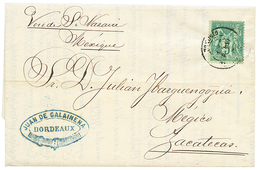 Via de St Nazaire
Mexique
Sr. D. Julian Ibarguengoyia
Megico
Zacatecas
JUAN DE GALAINENA
BORDEAUX